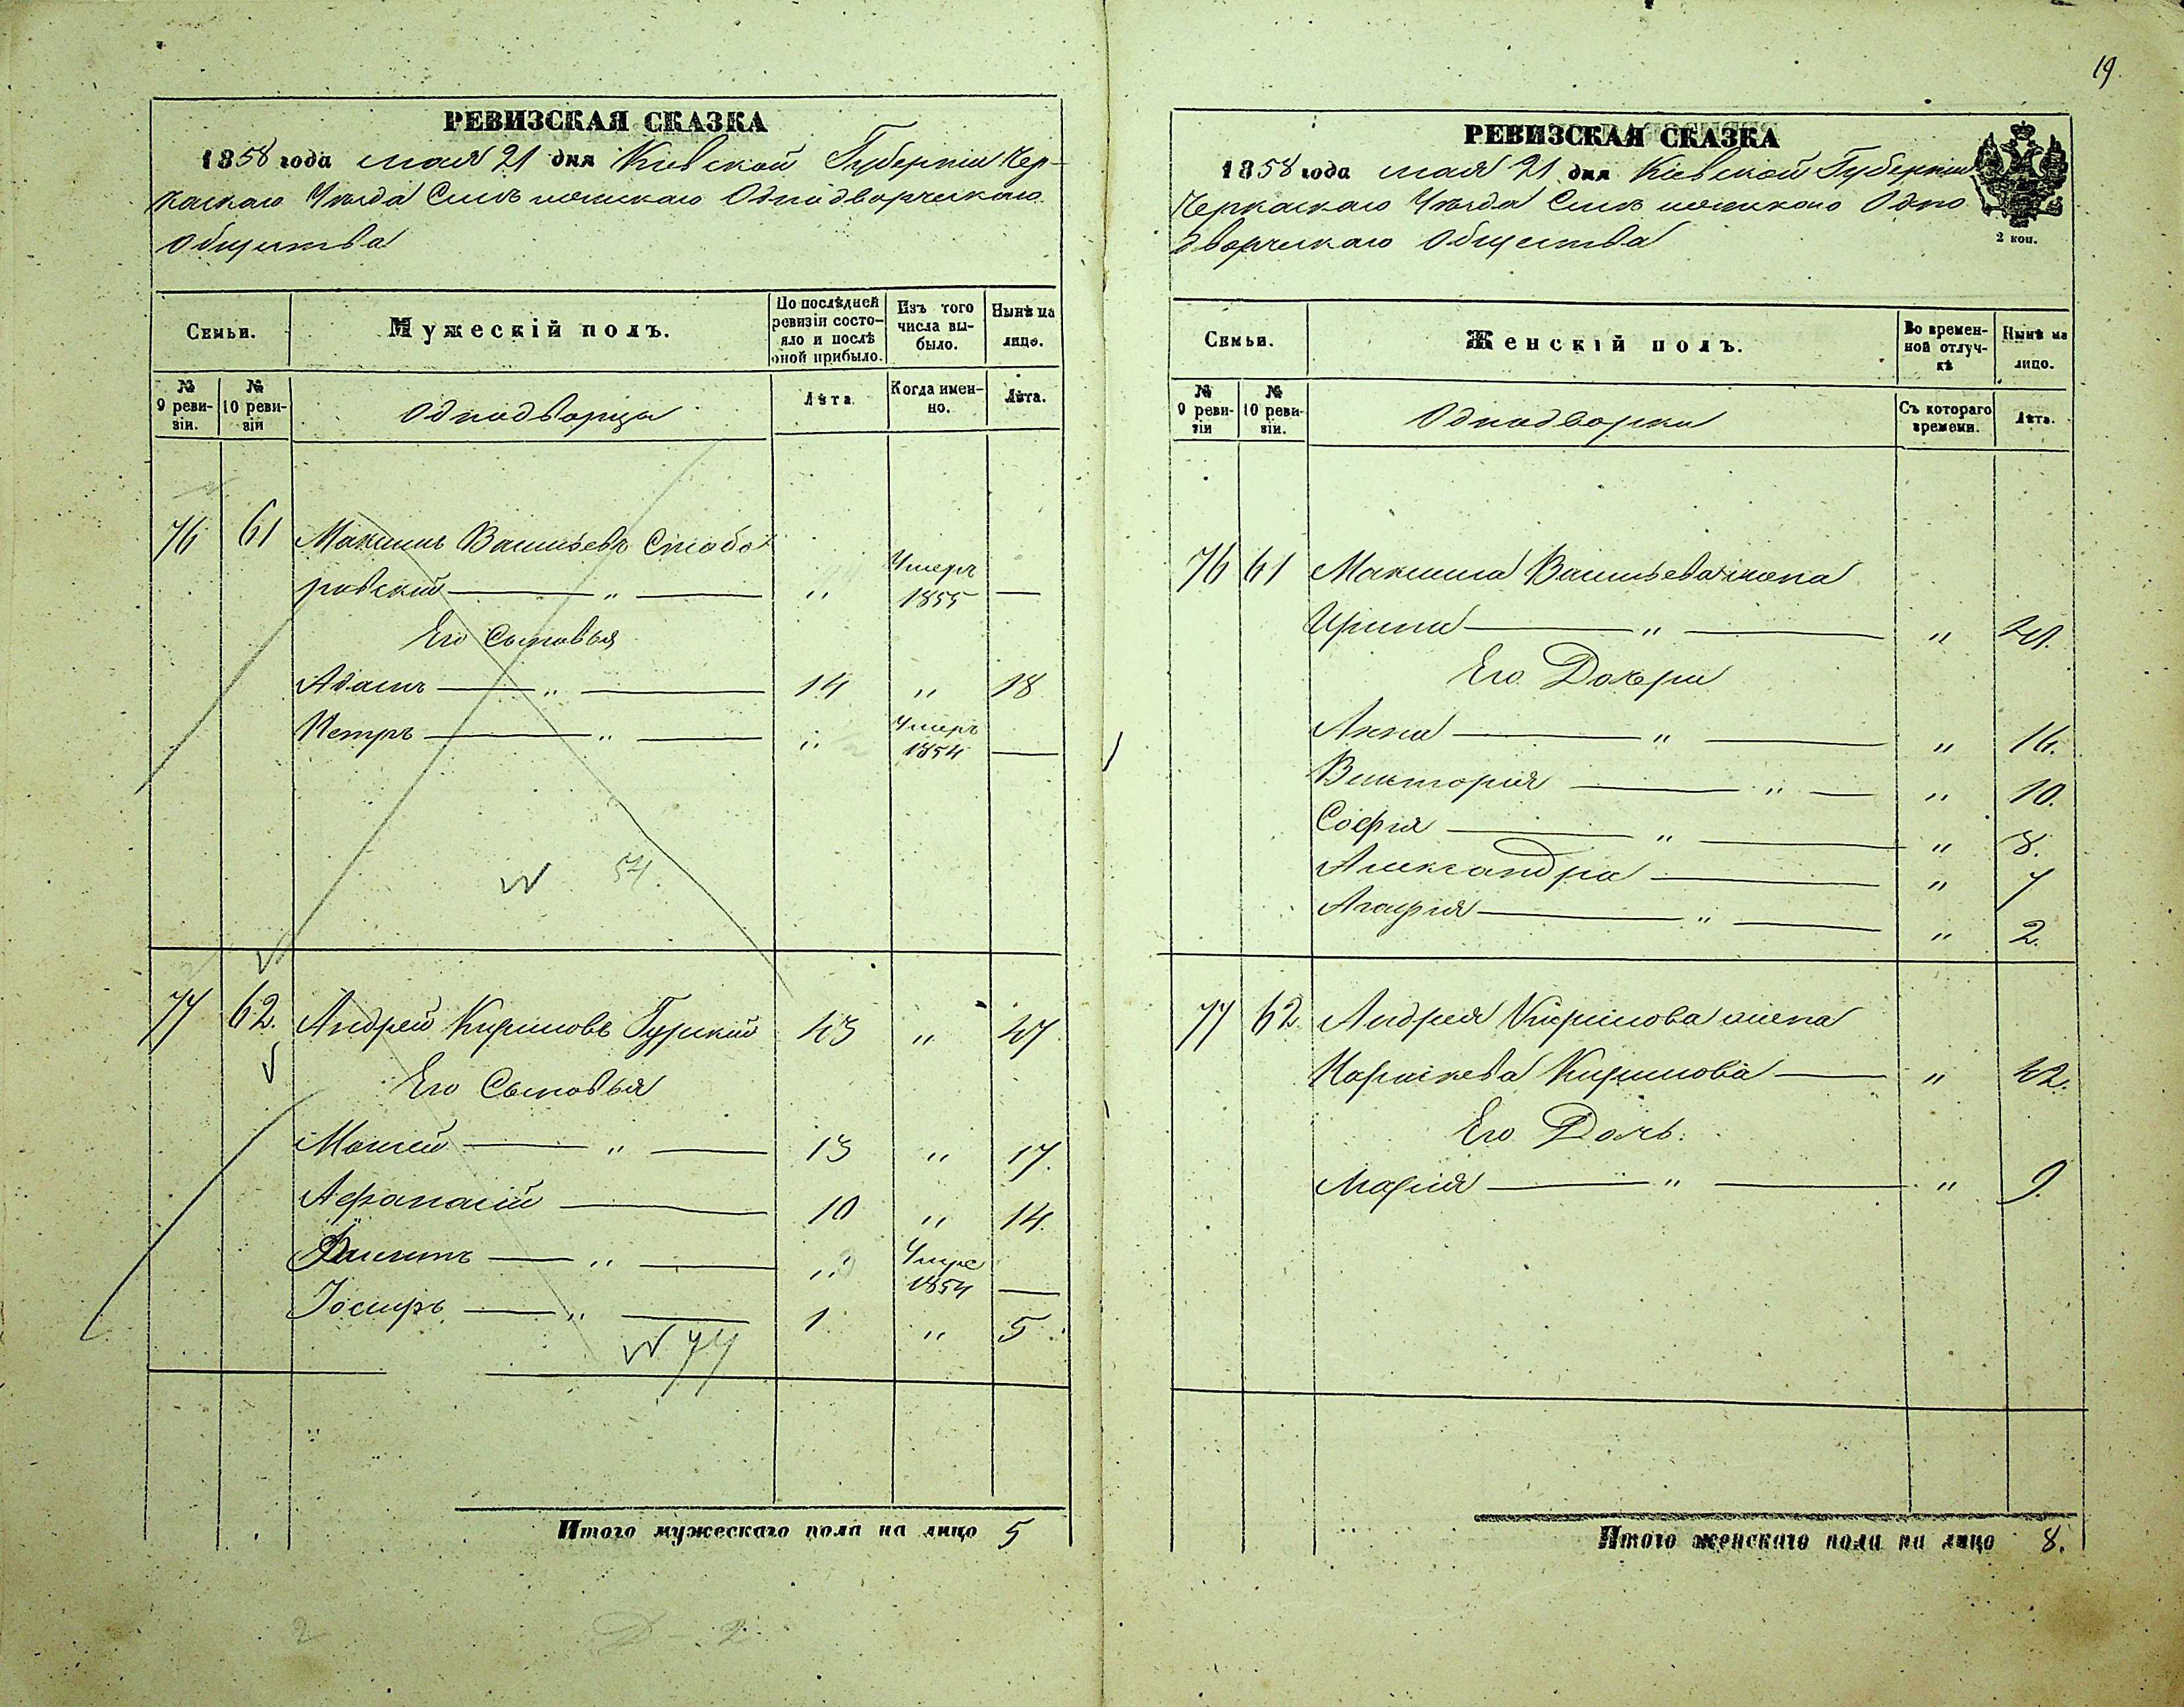 19.
РЕВИЗСКАЯ СКАЗКА
1858 года мая 21 дня Кіевской Губерніи Чер-
каскаго Уѣзда Смѣлянскаго Однодворческаго
Общества
Семьи.
Мужескій полъ.
По послѣдней ревизіи состо-яло и послѣ оной прибыло.
Изъ того числа вы-было.
Нынѣ на лицо.
№ 9 реви-зіи.
№ 10 реви-зіи
Однодворцы
Лѣта
Когда имен-но.
Лѣта.
76 61 Максимъ Васильевъ
ровскій — " — " Умеръ 1855 —
Его Сыновья
Адамъ — " — 14 " 18
Петръ — " — " Умеръ 1854 —
54.
77 62. Андрей Кириловъ Гурскій 43 " 47
Его Сыновья
Моисей — " — 13 " 17.
Афанасій — 10 " 14.
— " — " Умре 1854 —
Іосифъ — " — 1 " 5
77
Итого мужескаго пола на лицо 5
2
РЕВИЗСКАЯ СКАЗКА
1858 года мая 21 дня Кіевской Губерніи
Черкаскаго Уѣзда Смѣлянскаго Одно
дворческаго Общества
2 коп.
Семьи.
Женскій полъ.
Во времен-ной отлуч-кѣ
Нынѣ на лицо.
№ 9 реви-зіи
№ 10 реви-зіи.
Однодворки
Съ котораго времени.
Лѣта.
76 61 Максима Васильева жена
Ирина — " — "
Его Дочери
Анна — " — " 16.
Викторія — " — " 10.
Софія — " — " 8.
Александра — " 7
Агафія — " — " 2.
77 62. Андрея Кирилова жена
Параскева Кирилова — " 42.
Его Дочь.
Марія — " — " 9.
Итого женскаго пола на лицо 8.